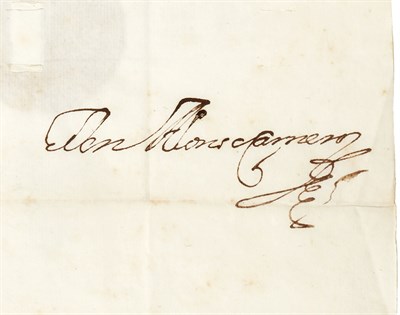 Don Alonso Carnero